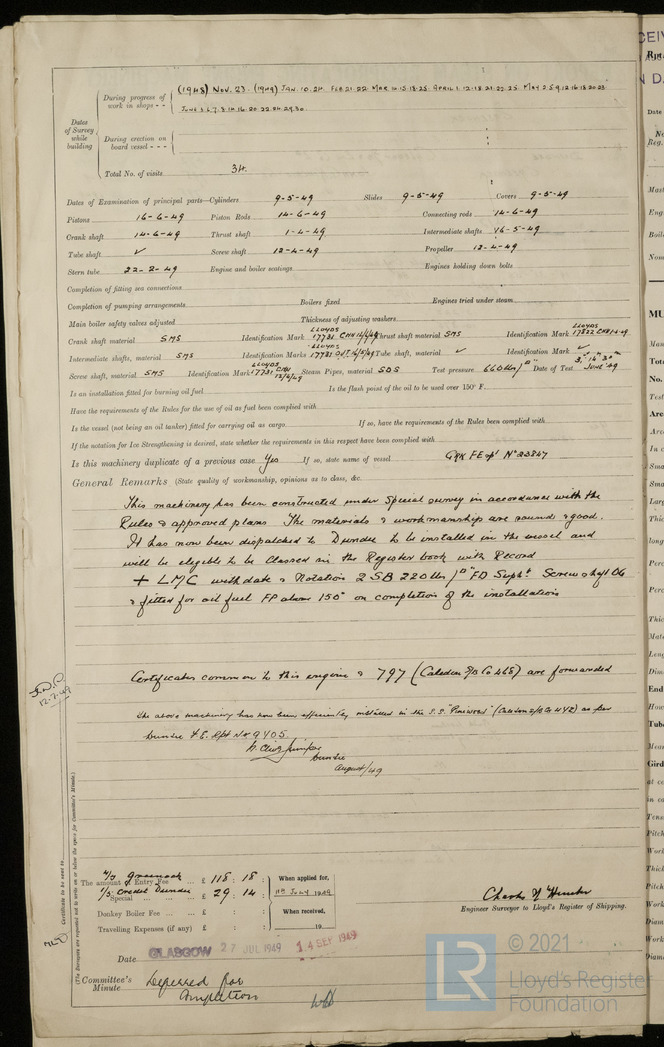 During progress of work in shops - - (1948) Nov. 23. (1949) Jan. 10. 24. Feb. 21. 22. Mar. 10. 15. 18. 25. April 1. 12. 18. 21. 22. 25. May 2. 5. 9. 12. 16. 18. 20. 23.
June 1. 6. 7. 8. 14. 16. 20. 22. 24. 29. 30.
Dates of Survey while building
During erection on board vessel - - -
Total No. of visits 34.
Dates of Examination of principal parts—Cylinders 9-5-49 Slides 9-5-49 Covers 9-5-49
Pistons 16-6-49 Piston Rods 14-6-49 Connecting rods 14-6-49
Crank shaft 14-6-49 Thrust shaft 1-4-49 Intermediate shafts 16-5-49
Tube shaft ✓ Screw shaft 12-4-49 Propeller 12-4-49
Stern tube 22-2-49 Engine and boiler seatings Engines holding down bolts
Completion of fitting sea connections
Completion of pumping arrangements Boilers fixed Engines tried under steam
Main boiler safety valves adjusted Thickness of adjusting washers
Crank shaft material SMS Identification Mark LLOYDS 17731 Thrust shaft material SMS Identification Mark LLOYDS
Intermediate shafts, material SMS Identification Marks LLOYDS 17731 Tube shaft, material ✓ Identification Mark ✓
Screw shaft, material SMS Identification Mark LLOYDS 17731 Steam Pipes, material SDS Test pressure 660 lbs/□" Date of Test JUNE '49
Is an installation fitted for burning oil fuel Is the flash point of the oil to be used over 150° F.
Have the requirements of the Rules for the use of oil as fuel been complied with
Is the vessel (not being an oil tanker) fitted for carrying oil as cargo. If so, have the requirements of the Rules been complied with
If the notation for Ice Strengthening is desired, state whether the requirements in this respect have been complied with
Is this machinery duplicate of a previous case Yes If so, state name of vessel Grk FE rpt No 23847
General Remarks (State quality of workmanship, opinions as to class, &c.
This machinery has been constructed under Special survey in accordance with the
Rules & approved plans The materials & workmanship are sound & good.
It has now been dispatched to Dundee to be installed in the vessel and
will be eligible to be Classed in the Register book with Record
+ LMC with date & Notation 2 SB 220 lbs/□" FD Supht Screw shaft OG
& fitted for oil fuel FP above 150° on completion of the installation
Certificates common to this engine & 797 (Caledon S/B Co 468) are forwarded
The above machinery has now been efficiently installed in the S.S. "Pinewood" (Caledon S/B Co 442) as per
Dundee F.E. Rpt No 9405.
Dundee
August/49
12-7-49
Certificate to be sent to
(The Surveyors are requested not to write on or below the space for Committee's Minute.)
2/3 Greenock
The amount of Entry Fee ... £ 118 : 18 : When applied for,
1/3 Credit Dundee
Special ... £ 29 : 14 : 11th July 1949
Donkey Boiler Fee ... £ : : When received,
Travelling Expenses (if any) £ : : 19
Engineer Surveyor to Lloyd's Register of Shipping.
Date GLASGOW 27 JUL 1949 14 SEP 1949
Committee's Minute Deferred for
Completion
LR © 2021
Lloyd's Register
Foundation